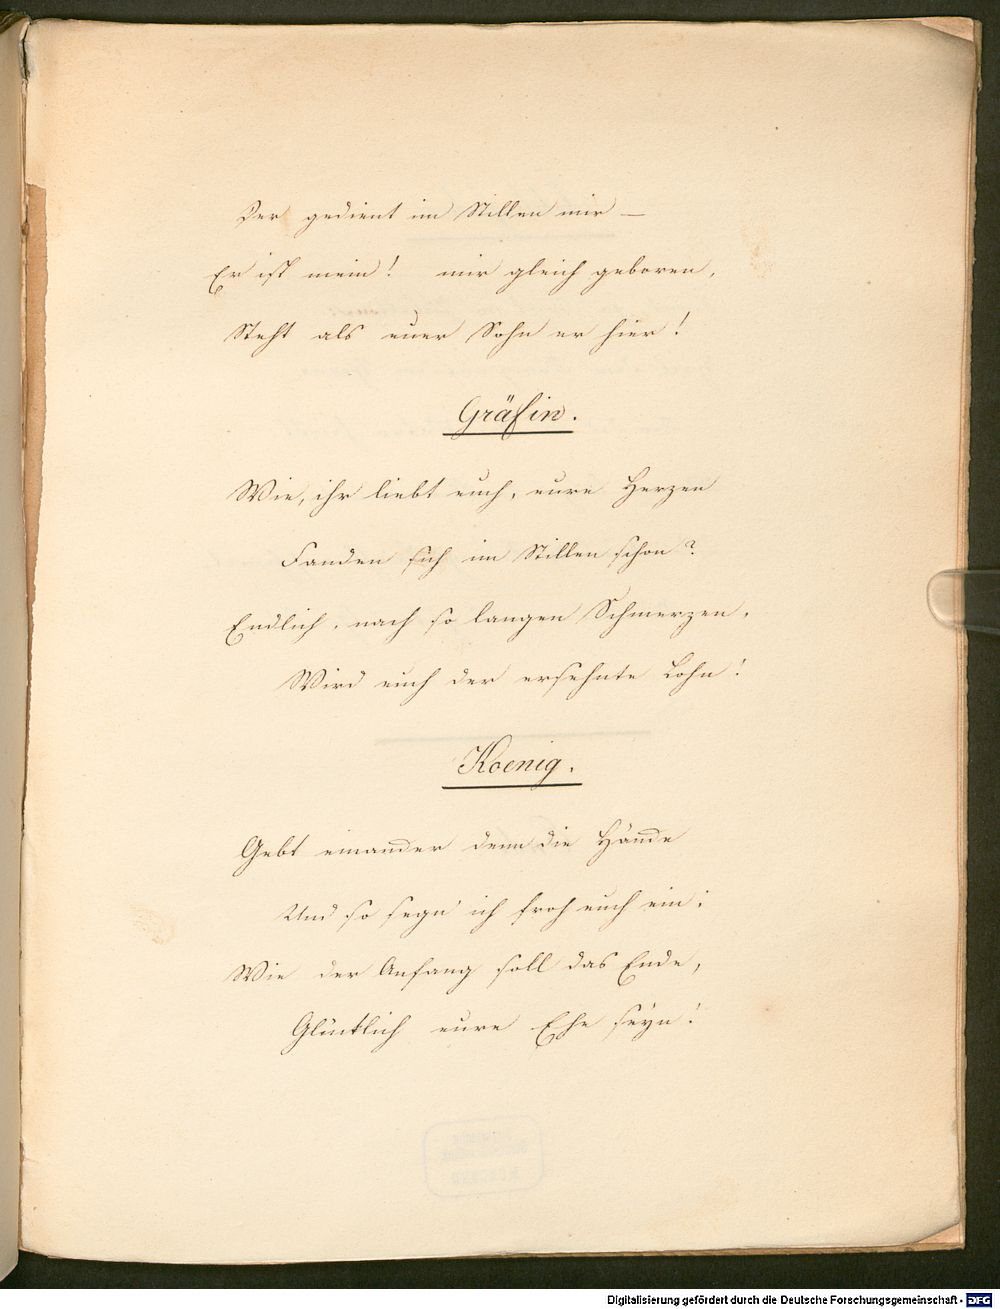 Der gedient im Stillen mir —
Er ist mein! mir gleich geboren,
Steht als euer Sohn er hier!
Gräfin.
Wie, ihr liebt euch, eure Herzen
Fanden sich im Stillen schon?
Endlich, nach so langen Schmerzen,
Wird euch der ersehnte Lohn!
Koenig.
Gebt einander denn die Hände
Und so segn' ich froh euch ein;
Wie der Anfang soll das Ende,
Glücklich eure Ehe seyn!
Digitalisierung gefördert durch die Deutsche Forschungsgemeinschaft - DFG